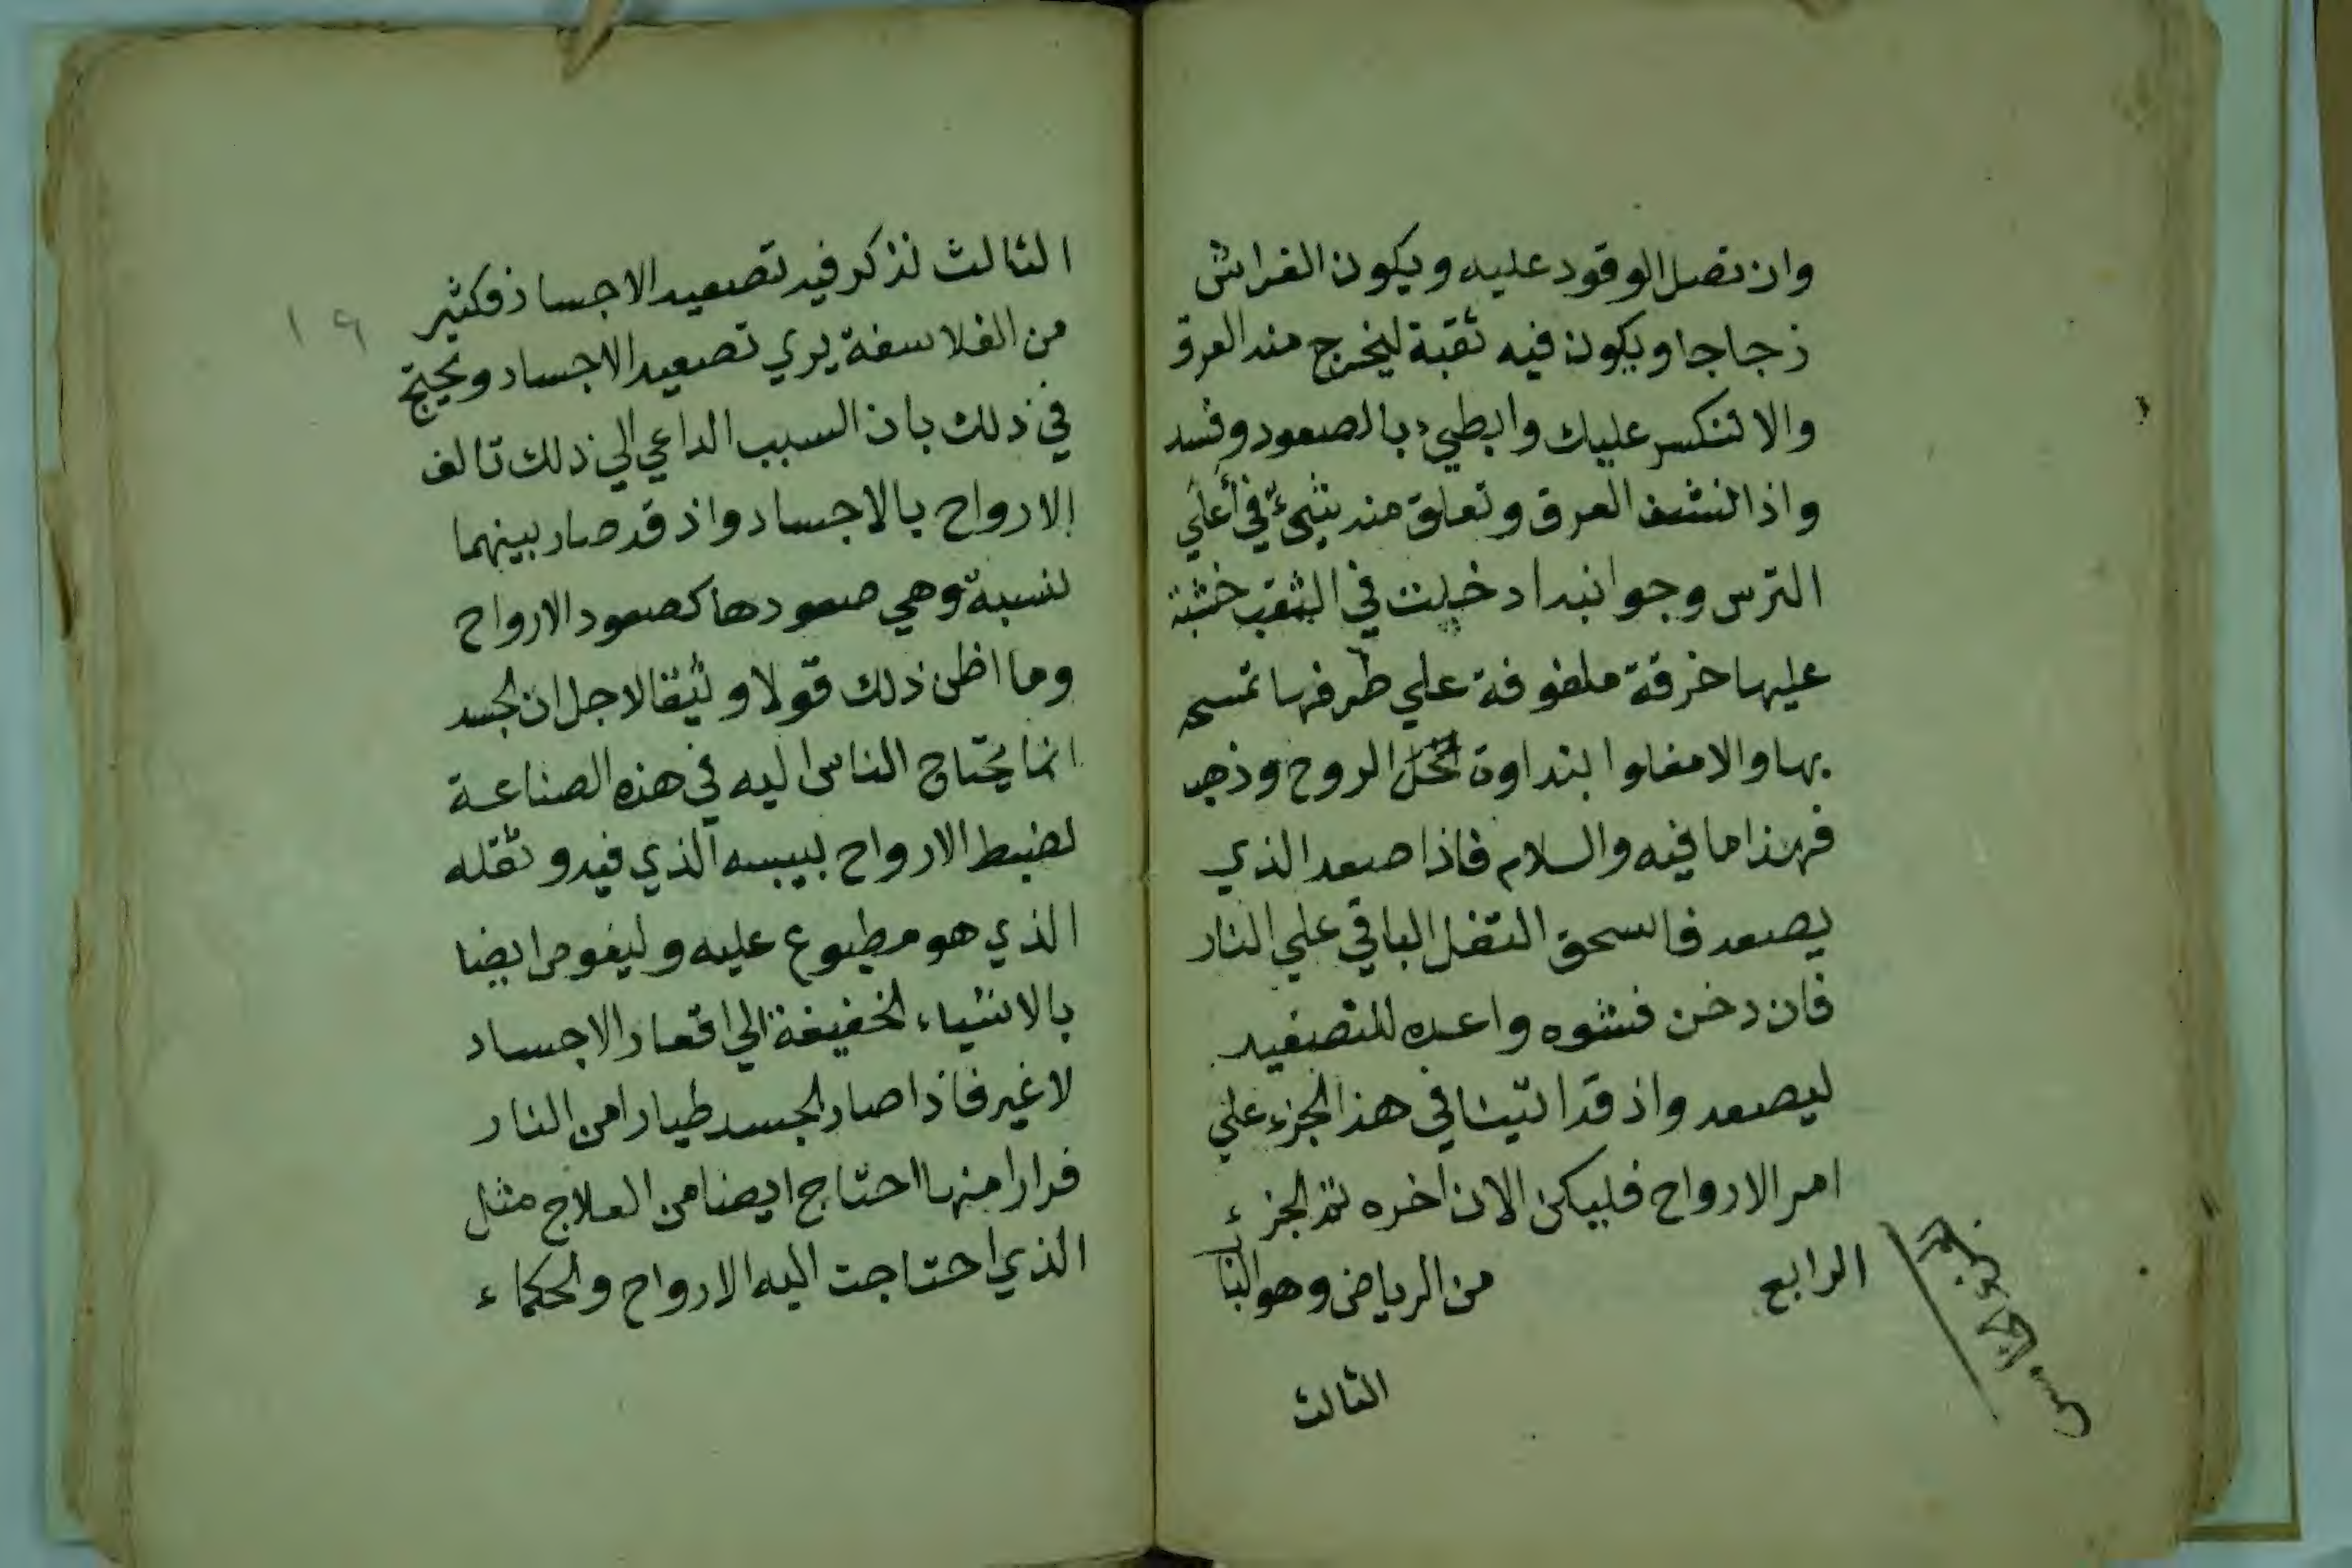 وان تصل الوقود عليه ويكون الفراش
زجاجا ويكون فيه ثقبة ليخرج منه العرق
والا تنكسر عليك وابطيء بالصعود وفسد
واذا نشف العرق وتعلق منه شيءٌ في أعلي
الترس وجوانبه ادخلت في الثقب خشبة
عليها خرقة ملفوفة علي طرفها تمسحه
بها والا بنداوة الروح وذهب
فهذا ما فيه والسلام فاذا صعد الذي
يصعد فاسحق التفل الباقي علي النار
فان دخن فشوه واعده للتصعيد
ليصعد واذ قد اتينا في هذا الجزء علي
امر الارواح فليكن الان اخره تم الجزء
الرابع من الرياض وهو البا
الثالث
الجزو الخامس
١٩
الثالث نذكر فيه تصعيد الاجساد فكثير
من الفلاسفة يري تصعيد الاجساد ويحتج
في ذلك بان السبب الداعي الي ذلك تالف
الارواح بالاجساد واذ قد صار بينهما
نسبة وهي صعودها كصعود الارواح
وما اظن ذلك قولا وثيقا لاجل ان الجسد
انما يحتاج الناس اليه في هذه الصناعة
لضبط الارواح بيبسه الذي فيه وثقله
الذي هو مطبوع عليه وليغوص ايضا
بالاشياء الخفيفة الي اقعار الاجساد
لا غير فاذا صار الجسد طيارا من النار
فرارا منها احتاج ايضا من العلاج مثل
الذي احتاجت اليه الارواح والحكماء